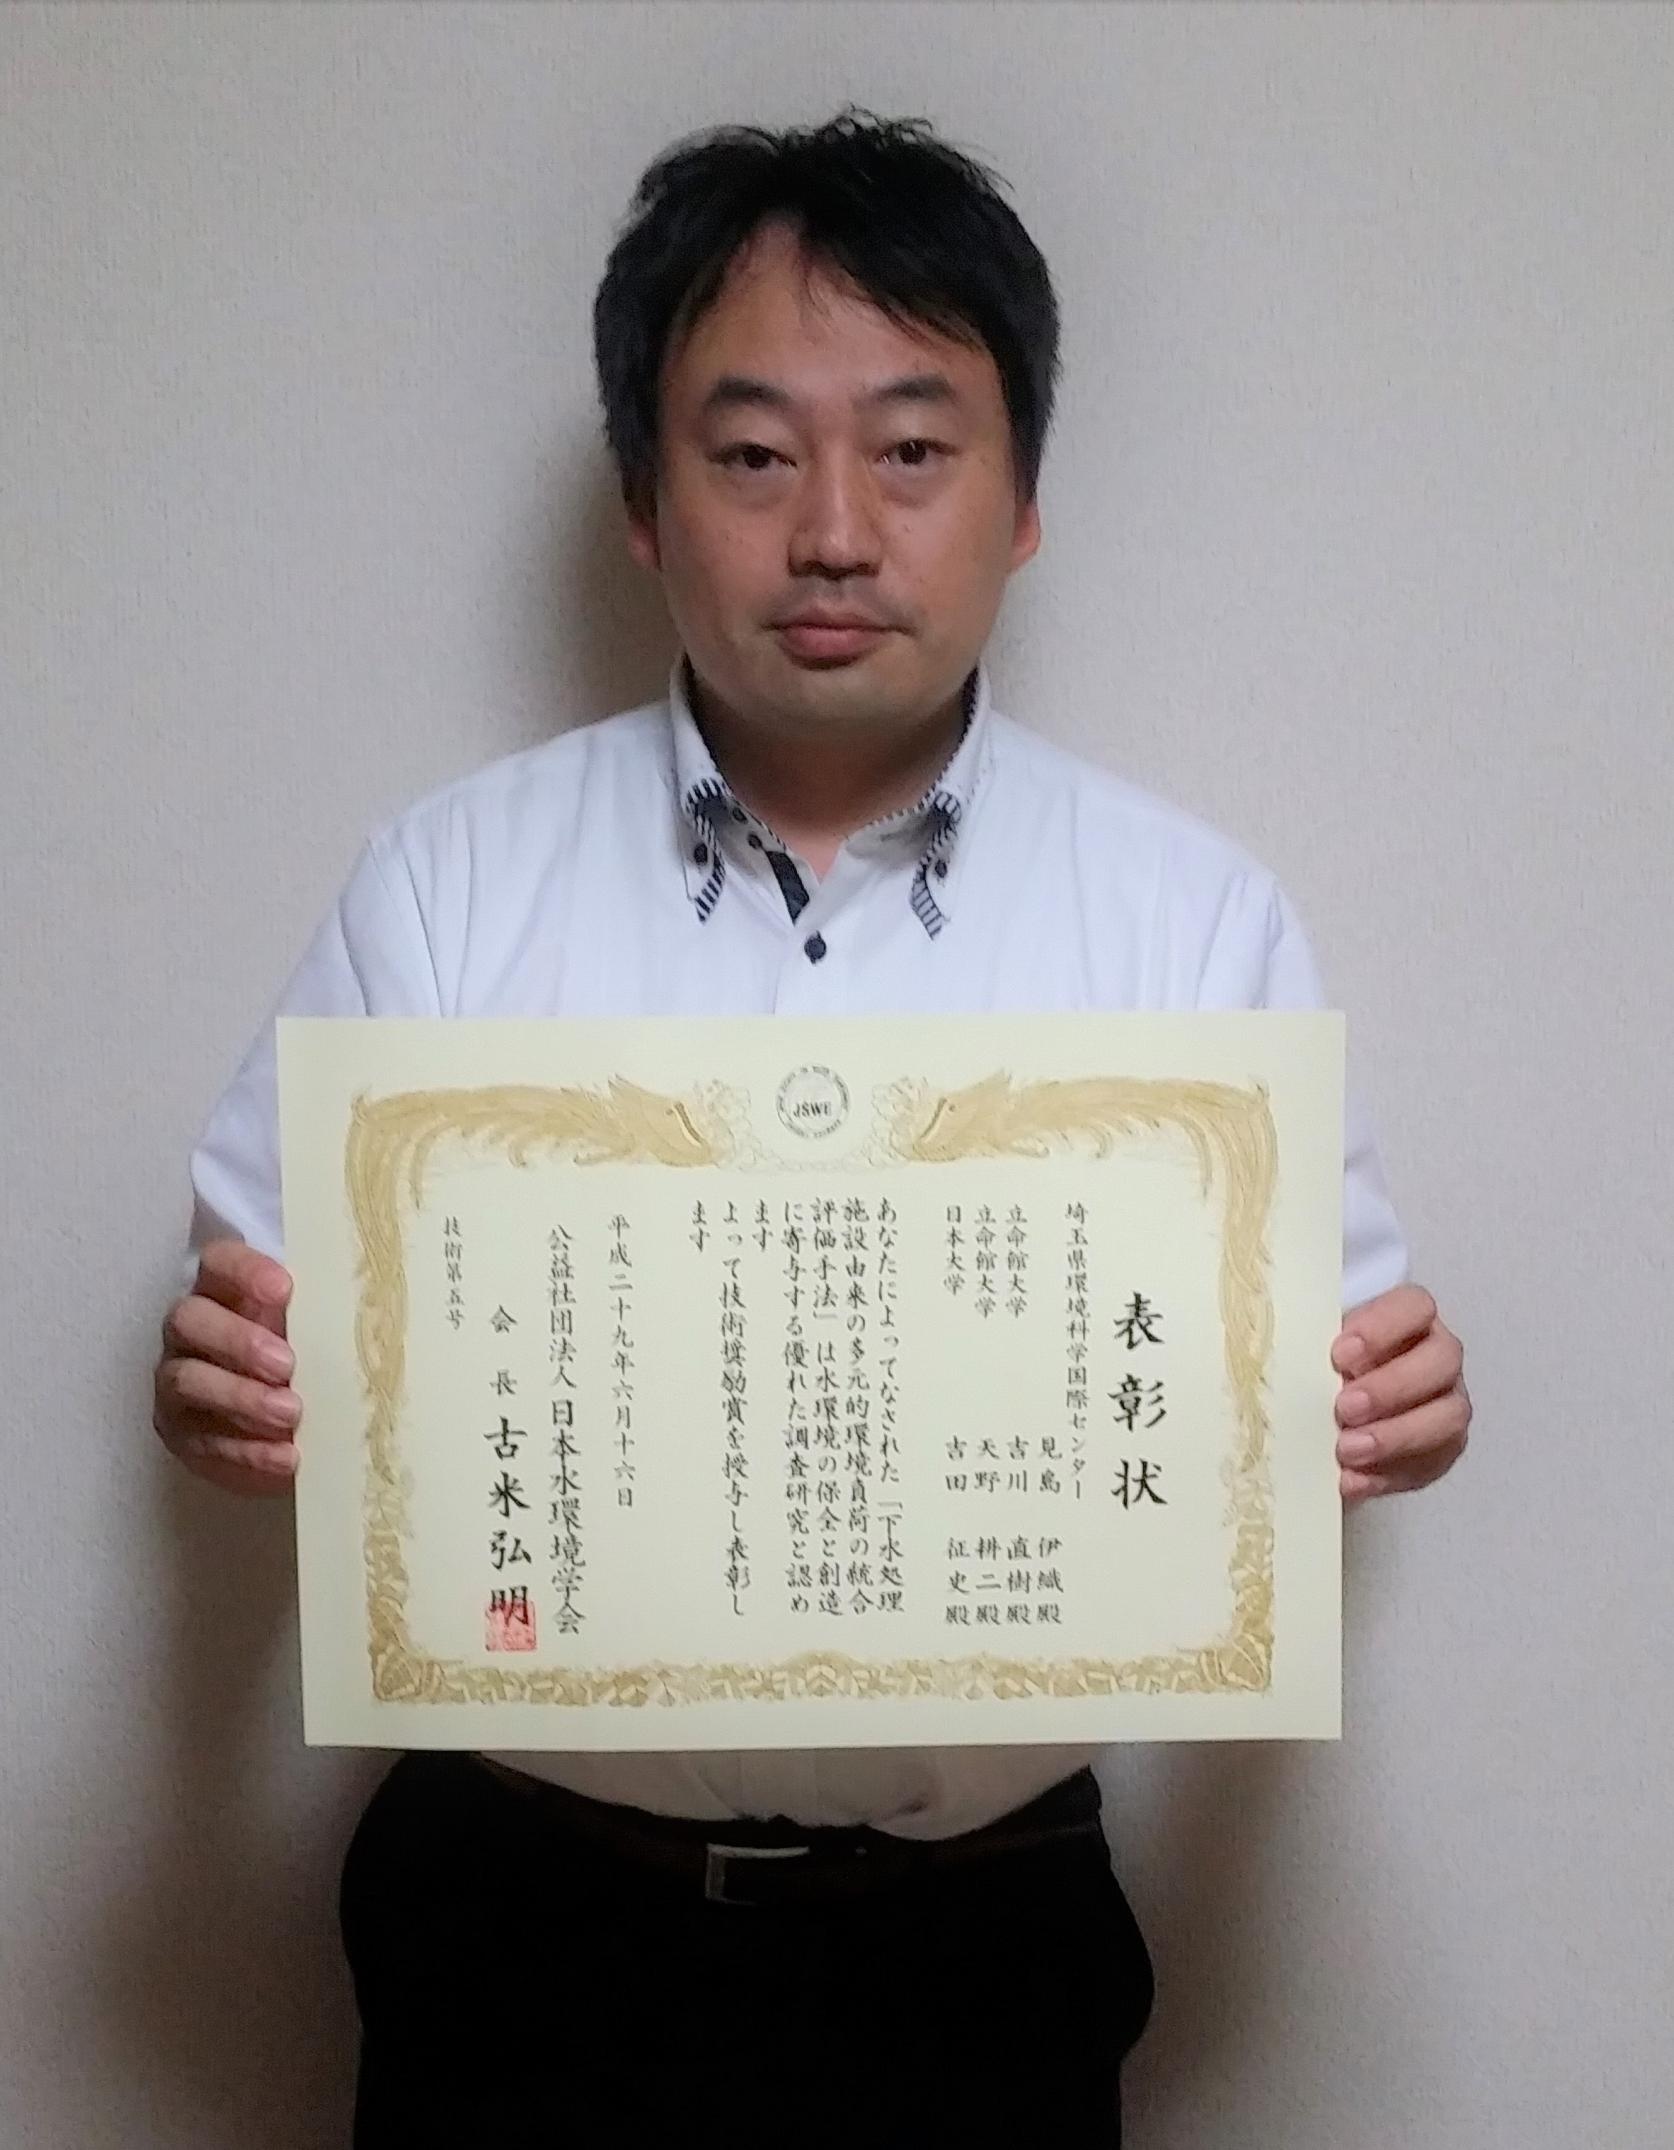 JSWE
表彰状
埼玉県環境科学国際センター
見島 伊織殿
立命館大学 吉川 直樹殿
立命館大学 天野 耕二殿
日本大学 吉田 征史殿
あなたによってなされた「下水処理
施設由来の多元的環境負荷の統合
評価手法」は水環境の保全と創造
に寄与する優れた調査研究と認め
ます
よって技術奨励賞を授与し表彰し
ます
平成二十九年六月十六日
公益社団法人 日本水環境学会
会長 古米弘明
技術第五号